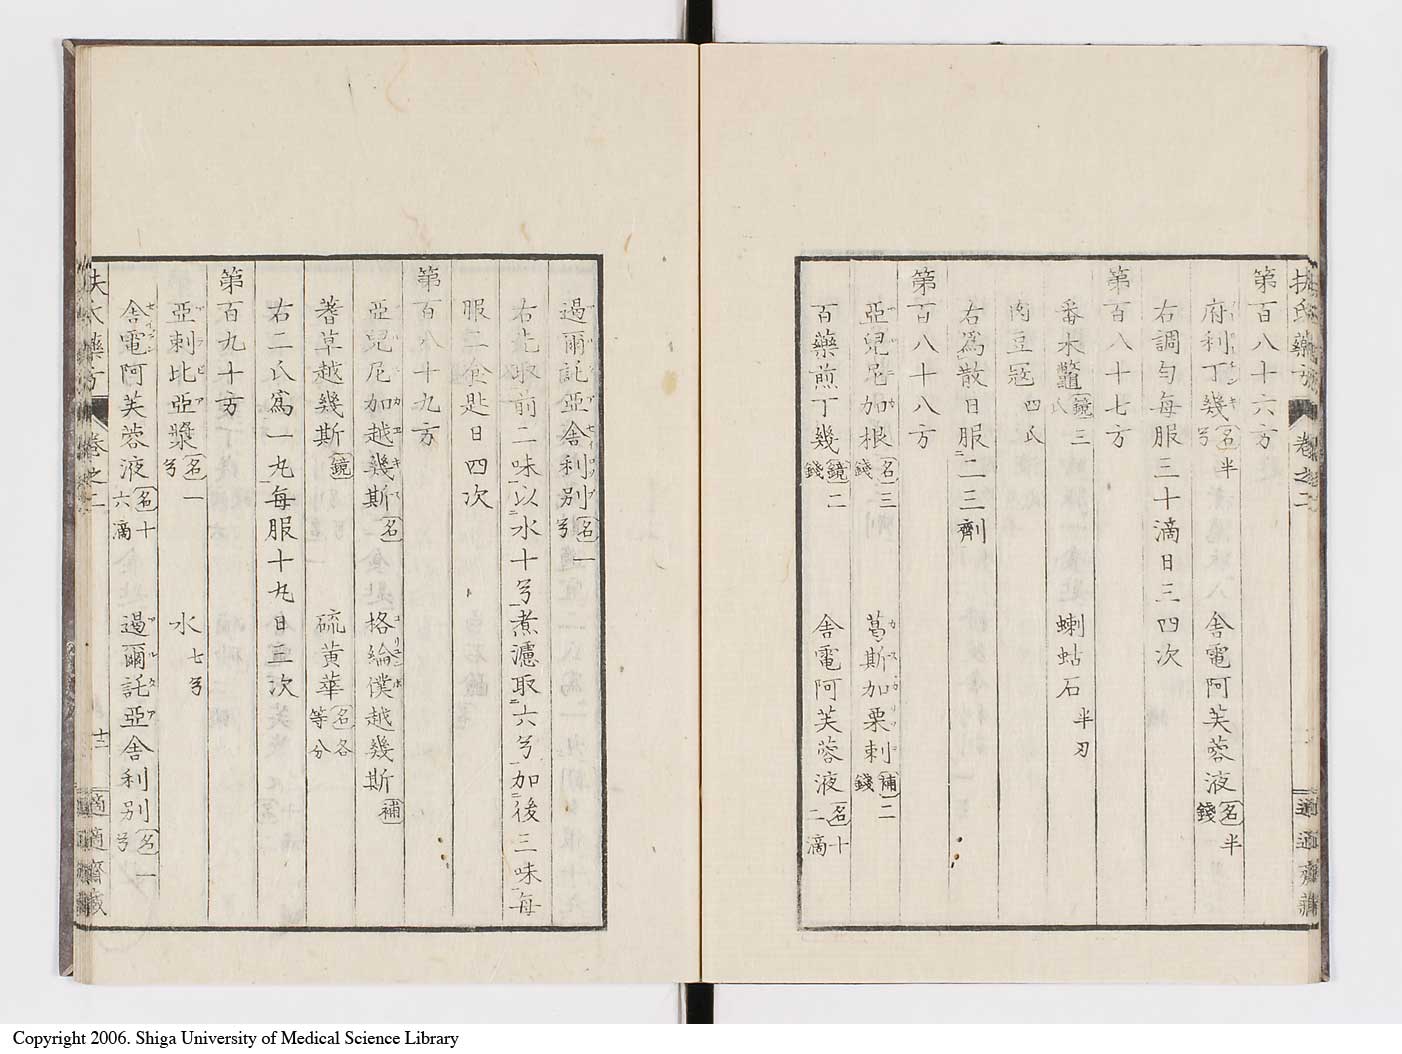 第百八十六方
府利丁幾 名半兮 舎電阿芙蓉液 名半錢
右調勻毎服三十滴日三四次
第百八十七方
番木鼈 鏡三氏 蝲蛄石 半刃
肉豆寇 四氏
右爲散日服二三劑
第百八十八方
亞兒尼加根 名三錢 葛斯加栗刺 補二錢
百藥煎丁幾 鏡二錢 舎電阿芙蓉液 名十二滴
過爾託亞舎利別 名一兮
右先取前二味以水十兮煮濾取六兮加後三味毎
服二食匙日四次
第百八十九方
亞兒尼加越幾斯 名 格綸僕越幾斯 補
蓍草越幾斯 鏡 硫黄華 名各等分
右二氏爲一丸毎服十丸日三次
第百九十方
亞刺比亞漿 名一兮 水 七兮
舎電阿芙蓉液 名十六滴 過爾託亞舎利別 名一兮
扶氏藥方 卷之二 十二 適適齋藏
Copyright 2006. Shiga University of Medical Science Library